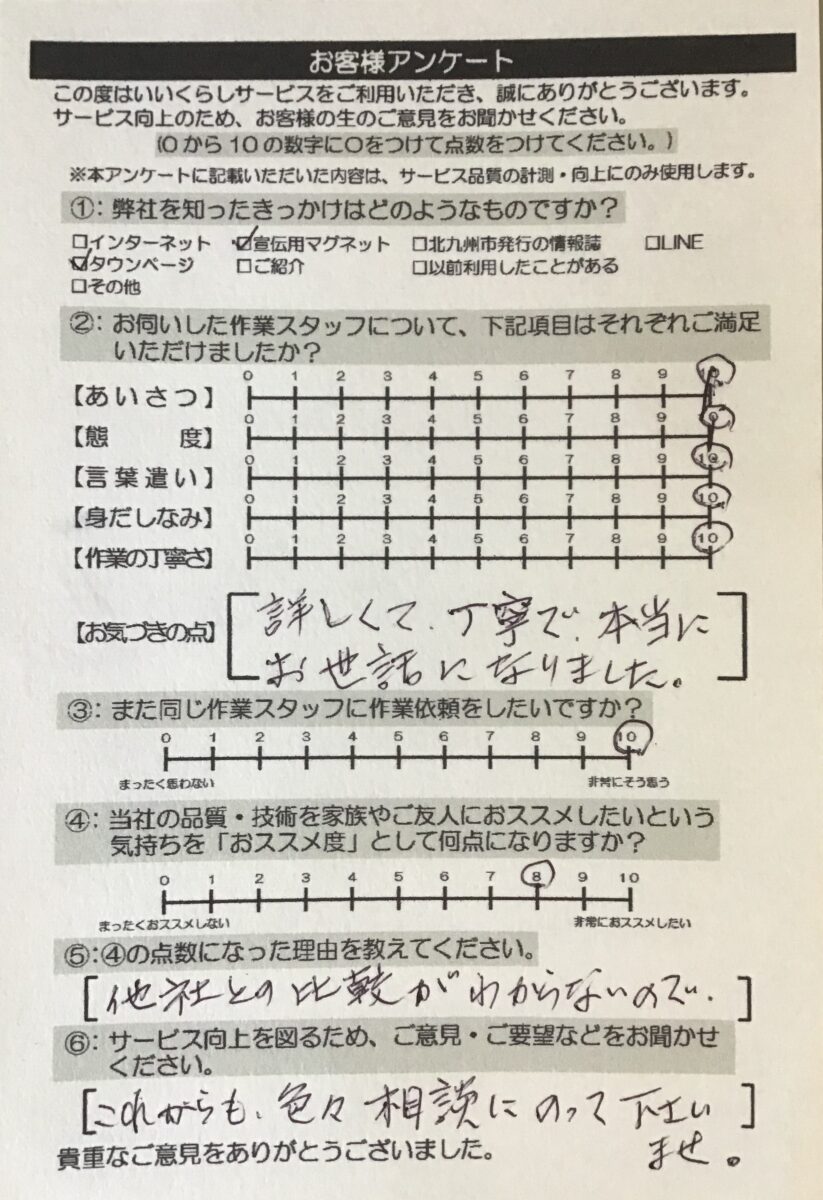 お客様アンケート
この度はいいくらしサービスをご利用いただき、誠にありがとうございます。
サービス向上のため、お客様の生のご意見をお聞かせください。
(0から10の数字に○をつけて点数をつけてください。)
※本アンケートに記載いただいた内容は、サービス品質の計測・向上にのみ使用します。
①：弊社を知ったきっかけはどのようなものですか？
□インターネット ☑宣伝用マグネット □北九州市発行の情報誌 □LINE
☑タウンページ □ご紹介 □以前利用したことがある
□その他
②：お伺いした作業スタッフについて、下記項目はそれぞれご満足
いただけましたか？
0 1 2 3 4 5 6 7 8 9 10
【あいさつ】
0 1 2 3 4 5 6 7 8 9 10
【態 度】
0 1 2 3 4 5 6 7 8 9 10
【言葉遣い】
0 1 2 3 4 5 6 7 8 9 10
【身だしなみ】
0 1 2 3 4 5 6 7 8 9 10
【作業の丁寧さ】
【お気づきの点】
詳しくて、丁寧で、本当に
お世話になりました。
③：また同じ作業スタッフに作業依頼をしたいですか？
0 1 2 3 4 5 6 7 8 9 10
まったく思わない 非常にそう思う
④：当社の品質・技術を家族やご友人におススメしたいという
気持ちを「おススメ度」として何点になりますか？
0 1 2 3 4 5 6 7 8 9 10
まったくおススメしない 非常におススメしたい
⑤：④の点数になった理由を教えてください。
[他社との比較がわからないので、]
⑥：サービス向上を図るため、ご意見・ご要望などをお聞かせ
ください。
[これからも、色々相談にのって下さい
ませ。]
貴重なご意見をありがとうございました。